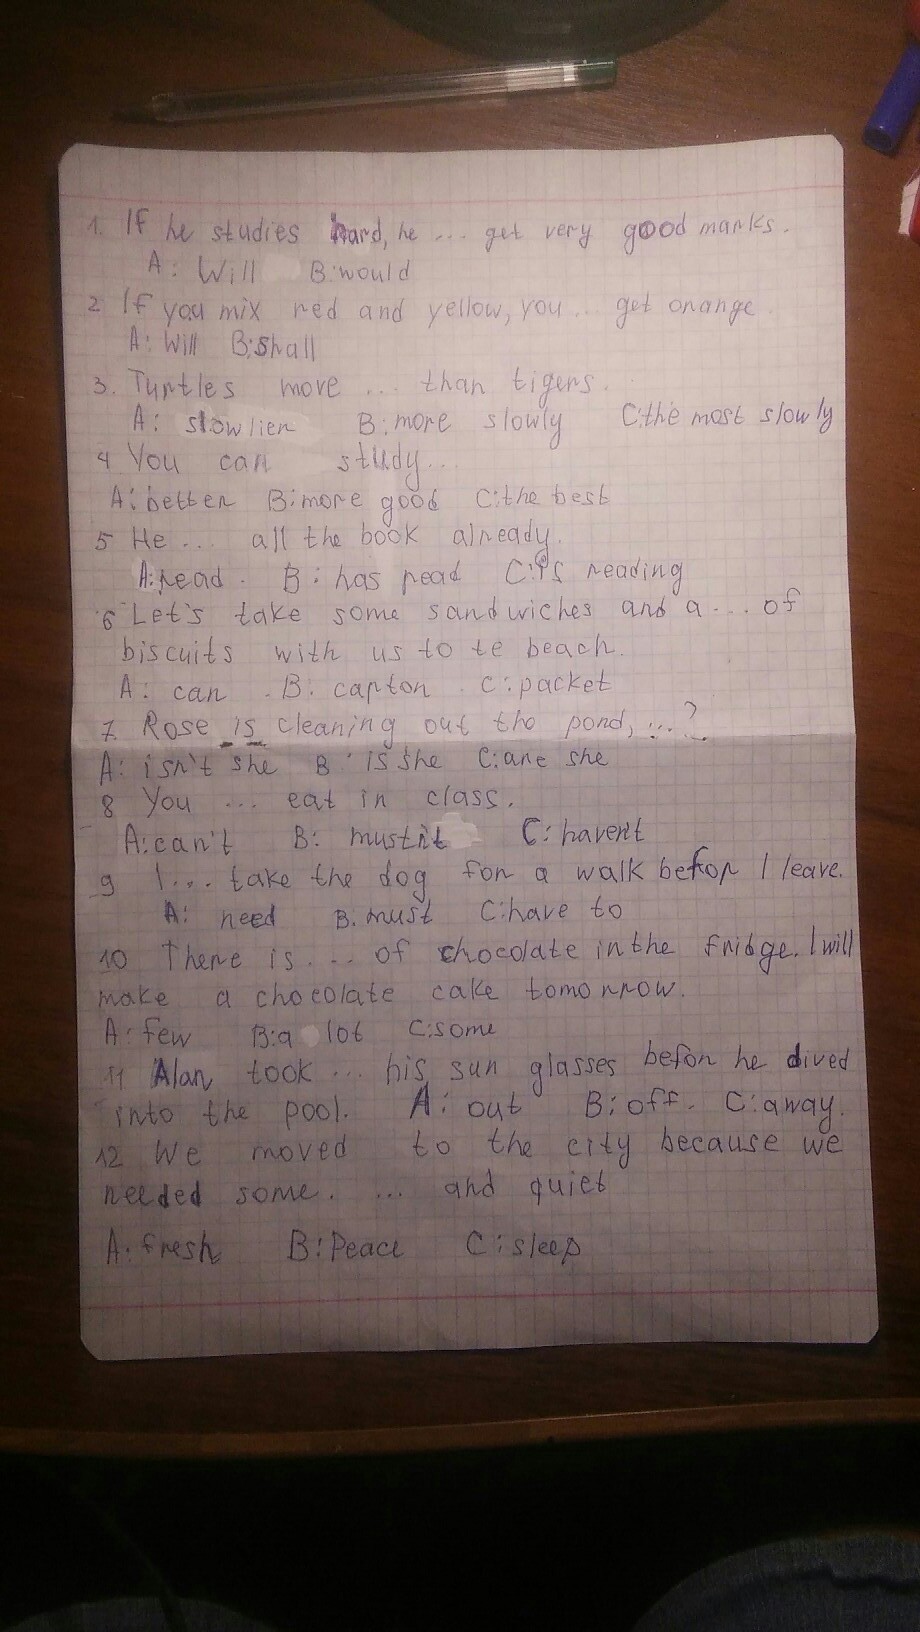 1. If he studies hard, he ... get very good marks.
A: Will B: would
2 If you mix red and yellow, you ... get orange.
A: Will B: Shall
3. Turtles move ... than tigers.
A: slowlier B: more slowly C: the most slowly
4 You can study...
A: better B: more good C: the best
5 He ... all the book already.
A: read. B: has read C: is reading
6 Let's take some sandwiches and a ... of
biscuits with us to te beach.
A: can . B: carton . C: packet
7. Rose is cleaning out the pond, ...?
A: isn't she B: is she C: are she
8 You ... eat in class.
A: can't B: mustn't C: haven't
9 I ... take the dog for a walk befor I leave.
A: need B: must C: have to
10 There is ... of chocolate in the fridge. I will
make a chocolate cake tomorrow.
A: few B: a lot C: some
11 Alan took ... his sun glasses befor he dived
into the pool. A: out B: off. C: away.
12 We moved to the city because we
needed some. ... and quiet
A: fresh B: Peace C: sleep